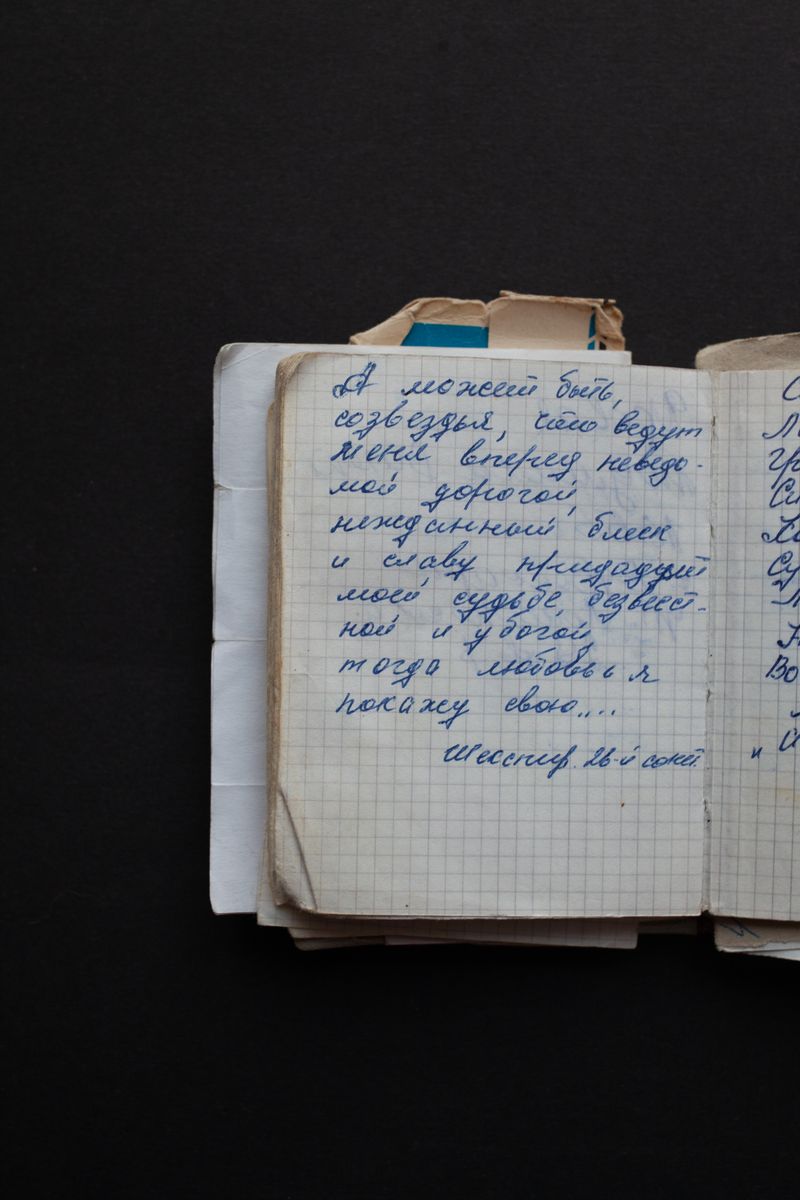 А может быть,
созвездья, что ведут
меня вперед неведо-
мой дорогой,
нежданный блеск
и славу придадут
моей судьбе, безвест-
ной и убогой,
тогда любовь я
покажу свою....
Шекспир. 26-й сонет.
Во